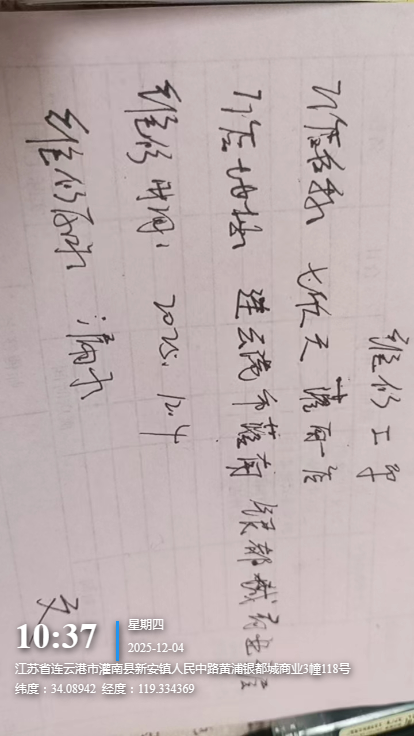 维修工单
门店名称 七欣天 灌南一店
门店地址 连云港市灌南 银都城
维修时间: 2025.12.4
维修
10:37
星期四
2025-12-04
江苏省连云港市灌南县新安镇人民中路黄浦银都城商业3幢118号
纬度:34.08942 经度:119.334369